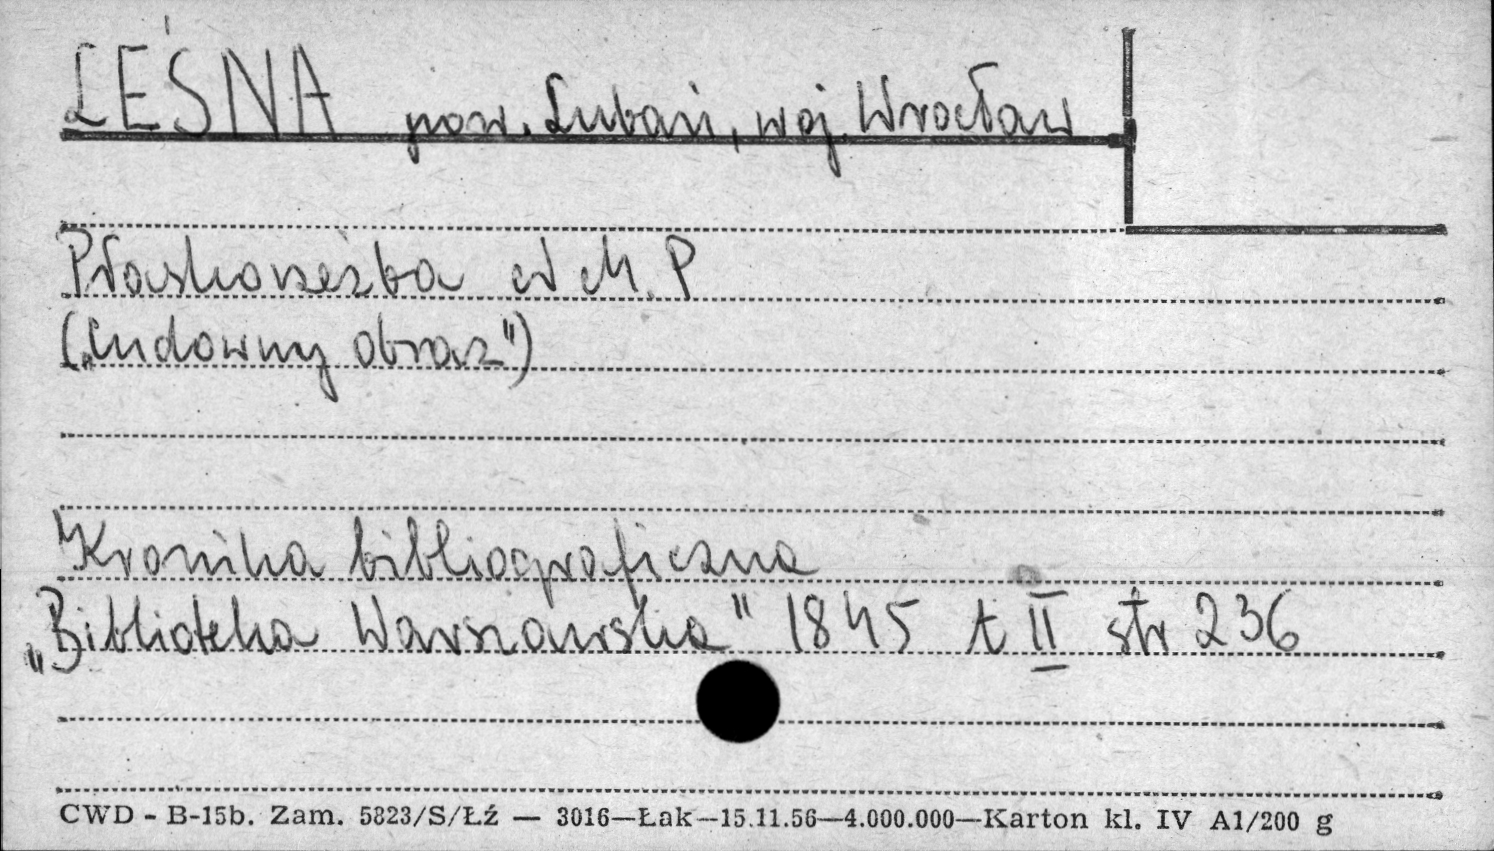 LEŚNA pow. Lubań, woj. Wrocław
Płaskorzeźba N M. P
(„Cudowny obraz")
Kronika bibliograficzna
„Biblioteka Warszawska" 1845 t II str 236
CWD - B-15b. Zam. 5823/S/Łź — 3016—Łak—15.11.56—4.000.000—Karton kl. IV A1/200 g